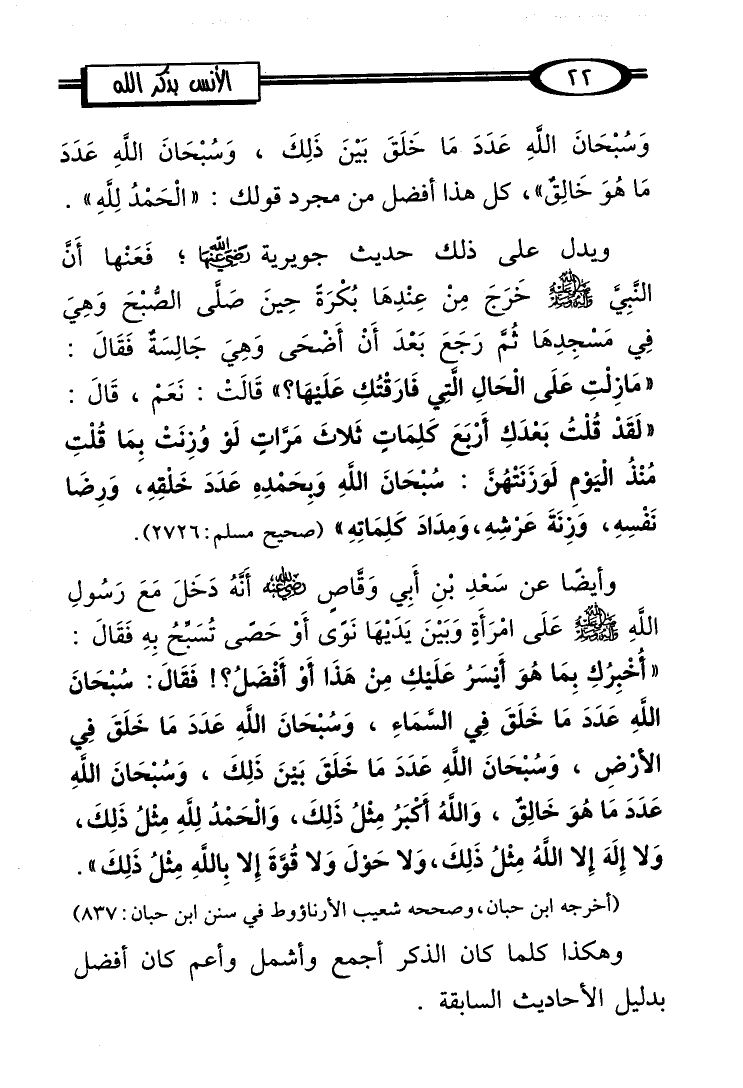 ٢٢
الأنس بذكر الله
وَسُبْحَانَ اللَّهِ عَدَدَ مَا خَلَقَ بَيْنَ ذَلِكَ ، وَسُبْحَانَ اللَّهِ عَدَدَ
مَا هُوَ خَالِقٌ» ، كل هذا أفضل من مجرد قولك : «الْحَمْدُ لِلَّهِ» .
ويدل على ذلك حديث جويرية رَضِيَ اللَّهُ عَنْهَا ؛ فَعَنْها أَنَّ
النَّبِيَّ ﷺ خَرَجَ مِنْ عِنْدِهَا بُكْرَةً حِينَ صَلَّى الصُّبْحَ وَهِيَ
فِي مَسْجِدِهَا ثُمَّ رَجَعَ بَعْدَ أَنْ أَضْحَى وَهِيَ جَالِسَةٌ فَقَالَ :
«مَازِلْتِ عَلَى الْحَالِ الَّتِي فَارَقْتُكِ عَلَيْهَا؟» قَالَتْ : نَعَمْ ، قَالَ :
«لَقَدْ قُلْتُ بَعْدَكِ أَرْبَعَ كَلِمَاتٍ ثَلاثَ مَرَّاتٍ لَوْ وُزِنَتْ بِمَا قُلْتِ
مُنْذُ الْيَوْمِ لَوَزَنَتْهُنَّ : سُبْحَانَ اللَّهِ وَبِحَمْدِهِ عَدَدَ خَلْقِهِ، وَرِضَا
نَفْسِهِ، وَزِنَةَ عَرْشِهِ،وَمِدَادَ كَلِمَاتِهِ» (صحيح مسلم:٢٧٢٦).
وأيضًا عن سَعْدِ بْنِ أَبِي وَقَّاصٍ رَضِيَ اللَّهُ عَنْهُ أَنَّهُ دَخَلَ مَعَ رَسُولِ
اللَّهِ ﷺ عَلَى امْرَأَةٍ وَبَيْنَ يَدَيْهَا نَوًى أَوْ حَصًى تُسَبِّحُ بِهِ فَقَالَ :
«أُخْبِرُكِ بِمَا هُوَ أَيْسَرُ عَلَيْكِ مِنْ هَذَا أَوْ أَفْضَلُ؟! فَقَالَ: سُبْحَانَ
اللَّهِ عَدَدَ مَا خَلَقَ فِي السَّمَاءِ ، وَسُبْحَانَ اللَّهِ عَدَدَ مَا خَلَقَ فِي
الأَرْضِ ، وَسُبْحَانَ اللَّهِ عَدَدَ مَا خَلَقَ بَيْنَ ذَلِكَ ، وَسُبْحَانَ اللَّهِ
عَدَدَ مَا هُوَ خَالِقٌ ، وَاللَّهُ أَكْبَرُ مِثْلُ ذَلِكَ، وَالْحَمْدُ لِلَّهِ مِثْلُ ذَلِكَ،
وَلا إِلَهَ إِلا اللَّهُ مِثْلُ ذَلِكَ،وَلا حَوْلَ وَلا قُوَّةَ إِلا بِاللَّهِ مِثْلُ ذَلِكَ» .
(أخرجه ابن حبان، وصححه شعيب الأرناؤوط في سنن ابن حبان: ٨٣٧)
وهكذا كلما كان الذكر أجمع وأشمل وأعم كان أفضل
بدليل الأحاديث السابقة .